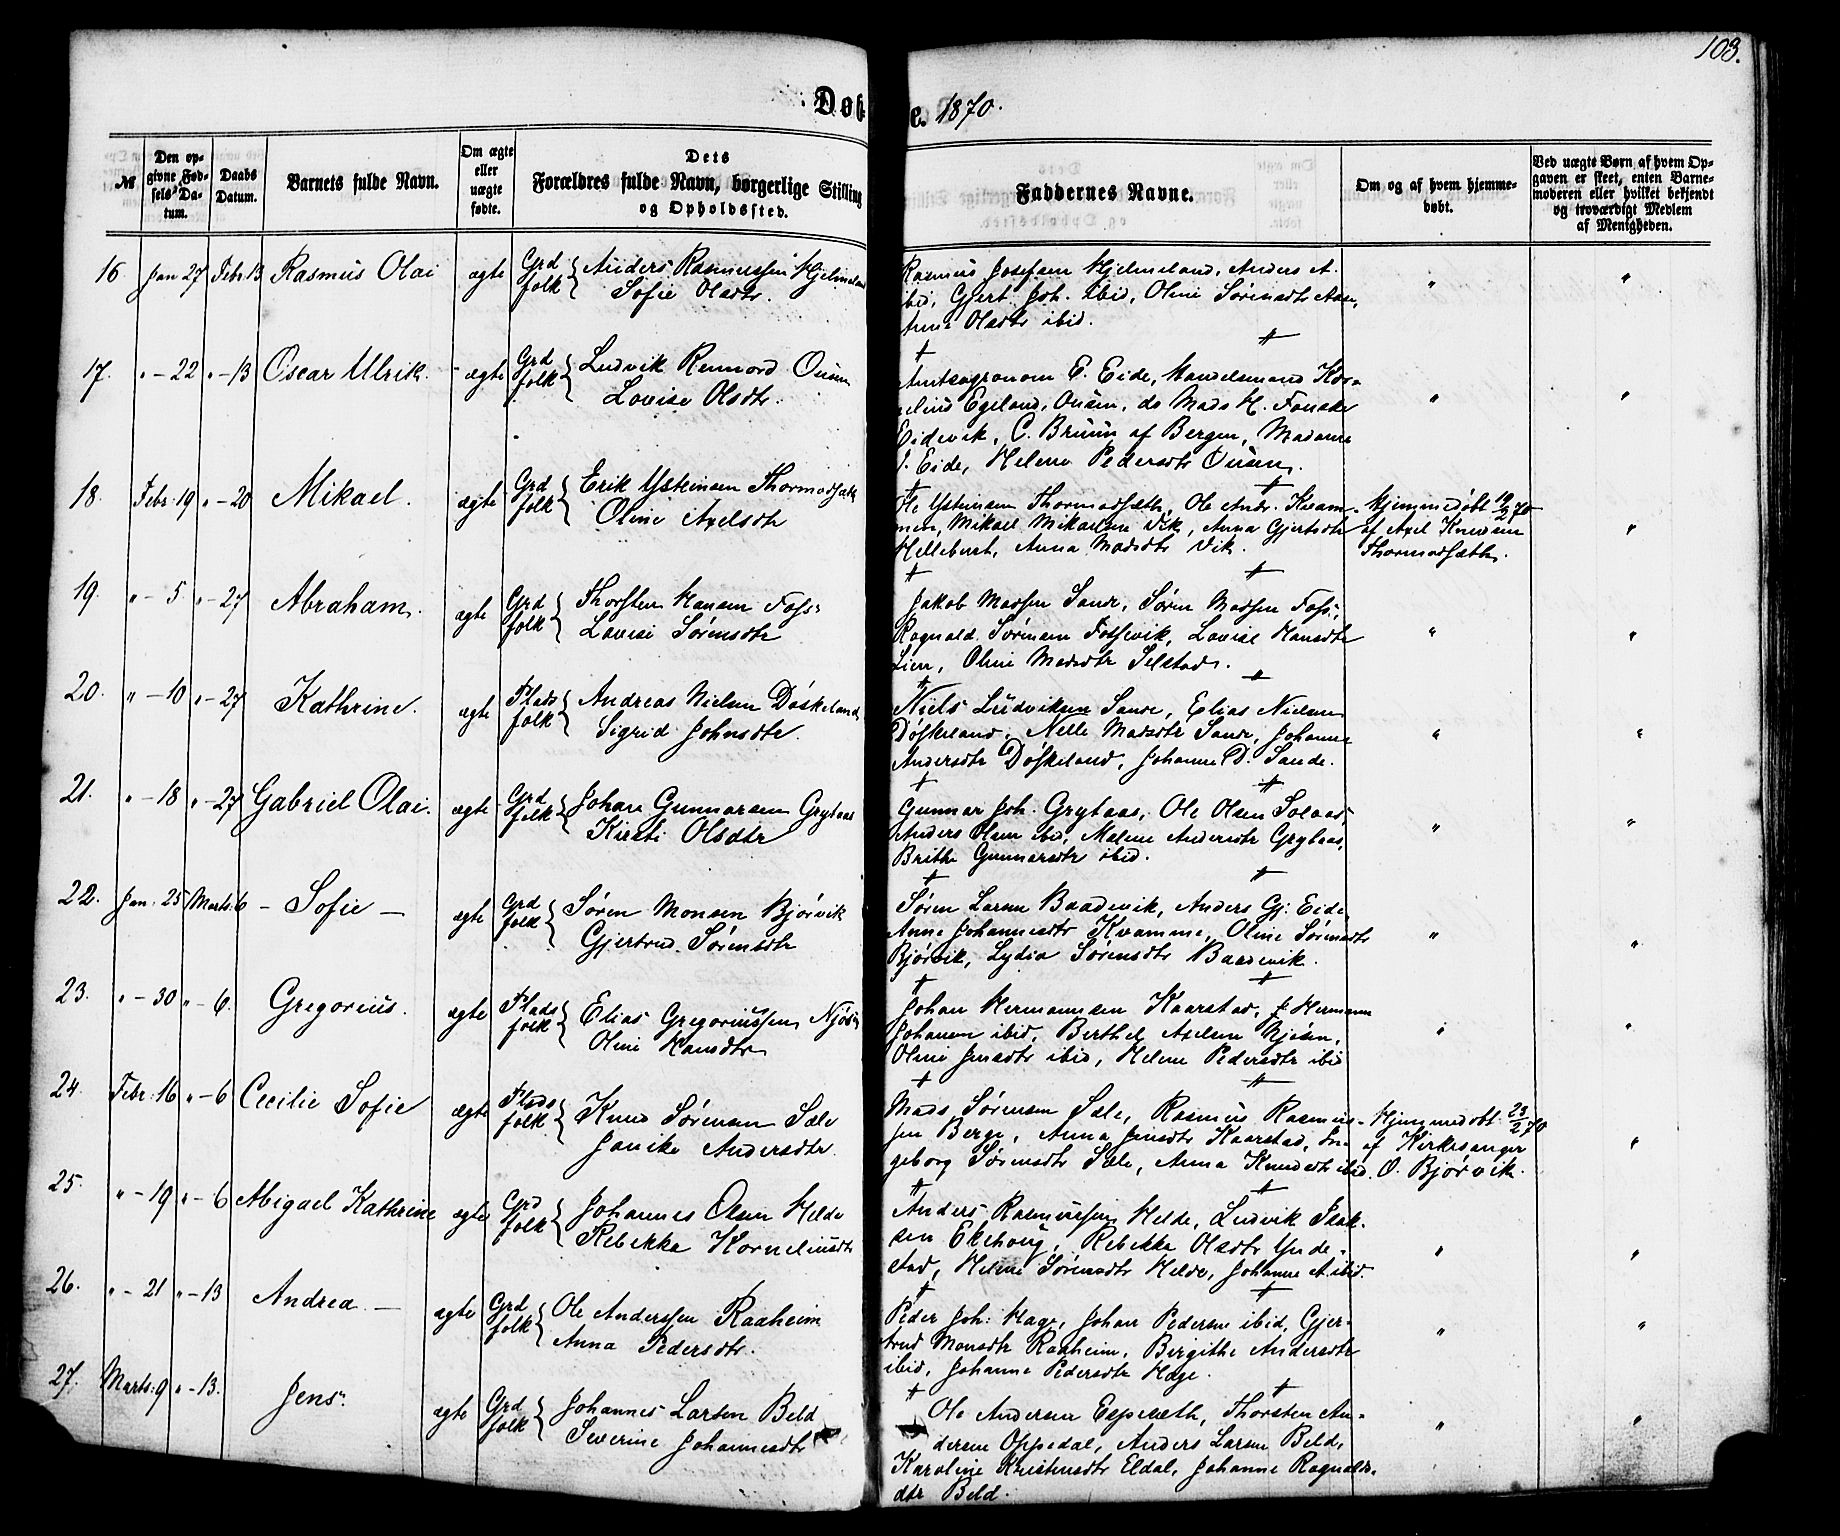 103.
Døbte. 1870.
№
Den opgivne Fødsels Datum.
Daabs Datum.
Barnets fulde Navn.
Om ægte eller uægte fødte.
Dets Forældres fulde Navn, borgerlige Stilling og Opholdssted.
Faddernes Navne.
Om og af hvem hjemmedøbt.
Ved uægte Børn af hvem Opgaven er skeet, enten Barnemoderen eller hvilket bekjendt og troværdigt Medlem af Menigheden.
16 Jan 27 Febr. 13 Rasmus Olai ægte Grd folk { Anders Rasmussen Hjelmeland
Sofie Olsdtr.
Rasmus Josefsen Hjelmeland, Anders A.
ibid, Gjert Joh. ibid, Oline Sørensdtr Aase,
Anna Olsdtr ibid. "
17. " - 22 " - 13 Oscar Ulrik. - ægte Grd folk { Ludvik Rennord Ousen
Lovise Olsdtr.
Amtsagronom E. Eide, Handelsmand Kor-
nelius Egeland, Ousen, do Mads H. Fonske
Eidevik, C. Bruun af Bergen, Madame
J. Eide, Helene Pedersdtr Ousen. "
18. Febr. 19 " - 20 Mikael. ægte Grd folk { Erik Ysteinsen Thormodsæth
Oline Axelsdtr
Ole Ysteinsen Thormodsæth, Ole Andr. Kvam-
men, Mikael Mikaelsen Vik, Anna Gjertsdtr
Hellebust, Anna Madsdtr Vik.
Hjemmedøbt 19/2 70
af Axel Knudsen
Thormodsæth. "
19. " - 5 " - 27 Abraham. ægte Grd folk { Thorsten Hansen Foss
Lovise Sørensdtr
Jakob Madsen Sande, Søren Madsen Foss,
Ragnald Sørensen Fossevik, Lovise Hansdtr
Lien, Oline Madsdtr Selstad. "
20. " - 10 " - 27 Kathrine. ægte Plads folk { Andreas Nielsen Døskeland
Sigrid Johnsdtr.
Niels Ludviksen Sande, Elias Nielsen
Døskeland, Nelle Madsdtr Sande, Johanne
Andersdtr Døskeland, Johanne D. Sande. "
21. " - 18 " - 27 Gabriel Olai. ægte Grd folk { Johan Gunnarsen Grytaas
Kirsti Olsdtr
Gunnar Joh. Grytaas, Ole Olsen Solaas,
Anders Olsen ibid, Malene Andersdtr Grytaas,
Brithe Gunnarsdtr ibid. "
22. Jan. 25 Marts 6 - Sofie - ægte Grd folk { Søren Monsen Bjørvik
Gjertrud Sørensdtr
Søren Larsen Baadevik, Anders Gj. Eide,
Anne Johannesdtr Kvamme, Oline Sørensdtr
Bjørvik, Lydia Sørensdtr Baadevik. "
23. " - 30 " - 6. Gregorius. ægte Plads folk { Elias Gregoriussen Njøsen
Oline Hansdtr
Johan Hermannsen Kaarstad, Hermann
Johansen ibid, Berthel Axelsen Njøsen,
Oline Jensdtr ibid, Helene Pedersdtr ibid "
24. Febr. 16 " - 6 Cecilie Sofie ægte Plads folk { Knud Sørensen Sæle
Janike Andersdtr.
Mads Sørensen Sæle, Rasmus Rasmus-
sen Berge, Anna Jensdtr Kaarstad, In-
geborg Sørensdtr Sæle, Anna Knudsdtr ibid.
Hjemmedøbt 23/2 70
af Kirkesanger
O. Bjørvik. "
25. " - 19 " - 6 Abigael Kathrine ægte Grd folk { Johannes Olsen Helde
Rebekka Korneliusdtr
Anders Rasmussen Helde, Ludvik Isak-
sen Ekehoug, Rebekka Olsdtr Ynde-
stad, Helene Sørensdtr Helde, Johanne A. ibid. "
26. " - 21 " - 13 Andrea. - ægte Grd folk { Ole Anderssen Raaheim
Anna Pedersdtr.
Peder Joh. Hage, Johan Pedersen ibid, Gjer-
trud Monsdtr Raaheim, Birgithe Andersdtr
ibid, Johanne Pedersdtr Hage. "
27. Marts 9 " - 13. Jens. ægte Grd folk { Johannes Larsen Beld
Severine Johannesdtr
Ole Andersen Espesæth, Thorsten An-
dersen Oppedal, Anders Larsen Beld,
Karoline Kristensdtr Eldal, Johanne Ragnalds-
dtr Beld. "